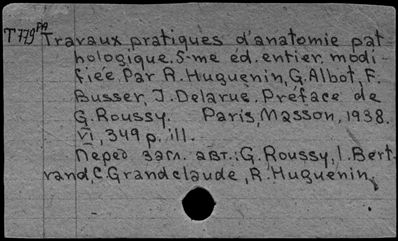 T779 PA Travaux pratiques d'anatomie pat
hologique. 5-me éd. entier. modi
fiée. Par R. Huguenin, G. Albot, F.
Busser, J. Delarue. Préface de
G. Roussy. Paris, Masson, 1938.
VI, 349 p. ill.
Перед загл. авт.: G. Roussy, I. Bert-
rand, C. Grandclaude, R. Huguenin.